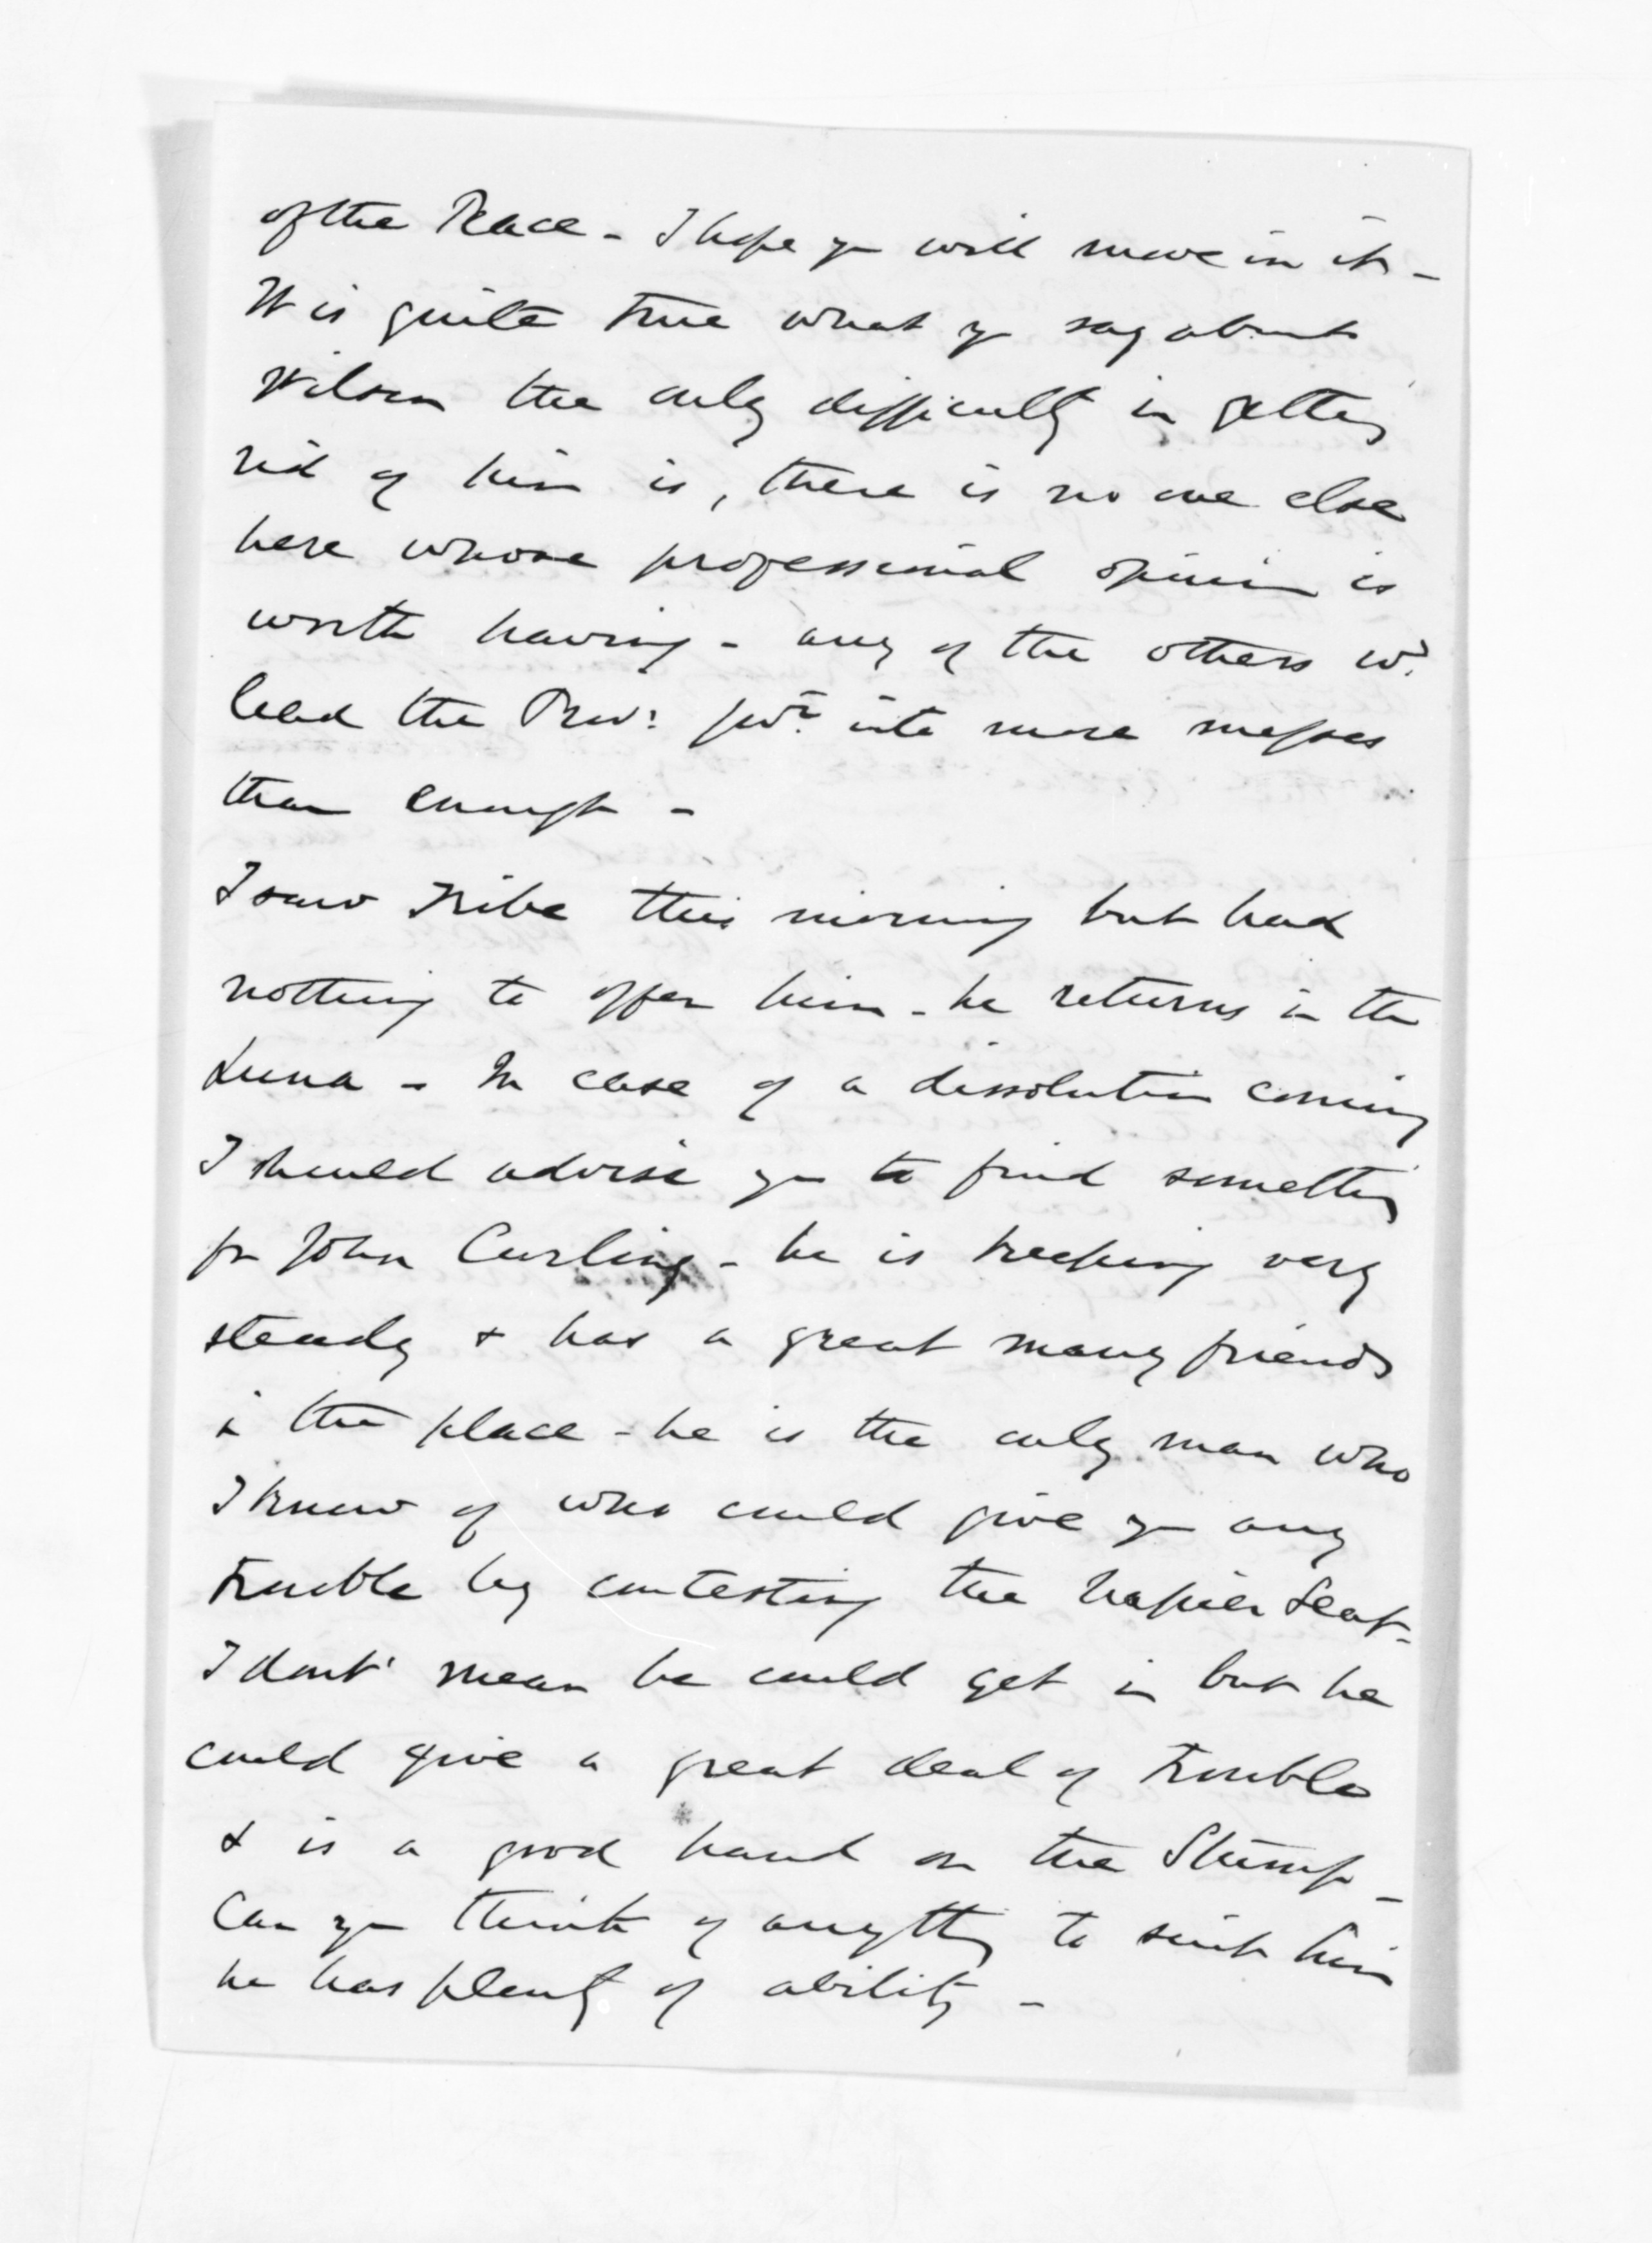 of the Peace - I hope you will move in it -
It is quite true what you say about
Wilson the only difficulty in getting
rid of him is, there is no one else
here whose professional opinion is
worth having - any of the others wd.
lead the Prov: govt. into more messes
than enough -
I saw Tribe this morning but had
nothing to offer him - he returns in the
Luna - In case of a dissolution coming
I should advise you to find something
for John Curling - he is keeping very
steady & has a great many friends
in the place - he is the only man who
I know of who could give you any
trouble by contesting the Napier Seat -
I dont' mean he could get in but he
could give a great deal of trouble
& is a good hand on the Stump -
Can you think of anything to suit him
he has plenty of ability -